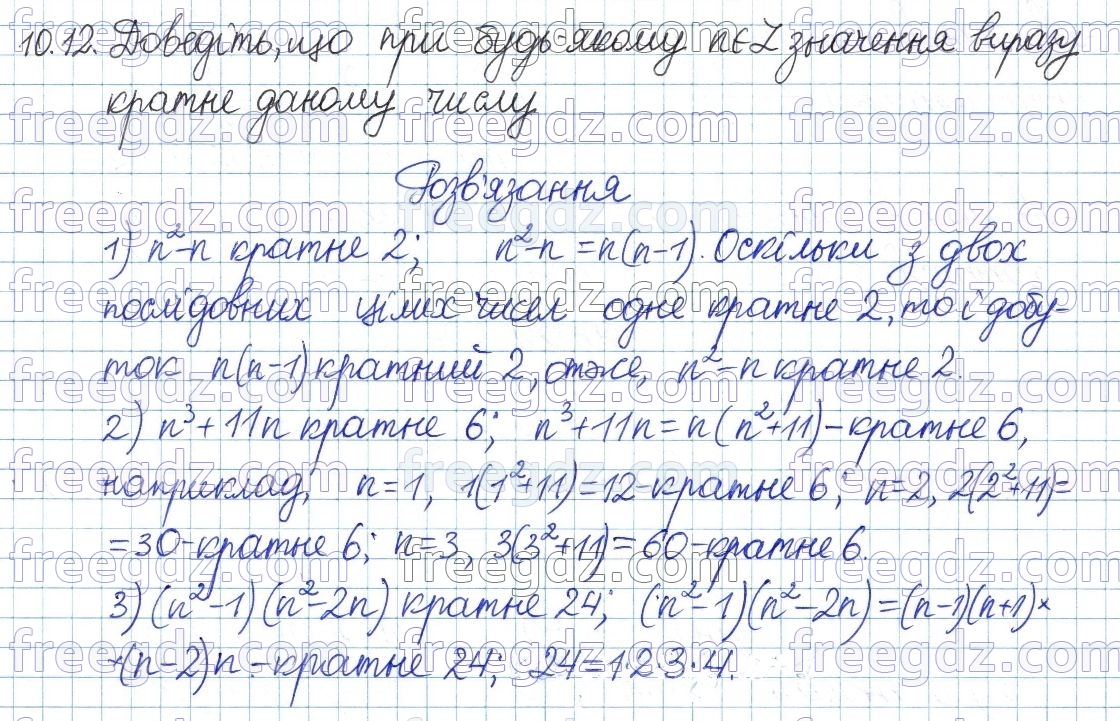 10.12. Доведіть, що при будь-якому n∈Z значення виразу
кратне даному числу
Розв'язання
1) n²-n кратне 2; n²-n = n(n-1). Оскільки з двох
послідовних цілих чисел одне кратне 2, то і добу-
ток n(n-1) кратний 2, отже, n²-n кратне 2.
2) n³+11n кратне 6; n³+11n = n(n²+11) - кратне 6,
наприклад, n=1, 1(1²+11)=12-кратне 6; n=2, 2(2²+11)=
=30-кратне 6; n=3, 3(3²+11)=60-кратне 6.
3) (n²-1)(n²-2n) кратне 24; (n²-1)(n²-2n)=(n-1)(n+1)×
×(n-2)n - кратне 24; 24=1·2·3·4.
freegdz.com